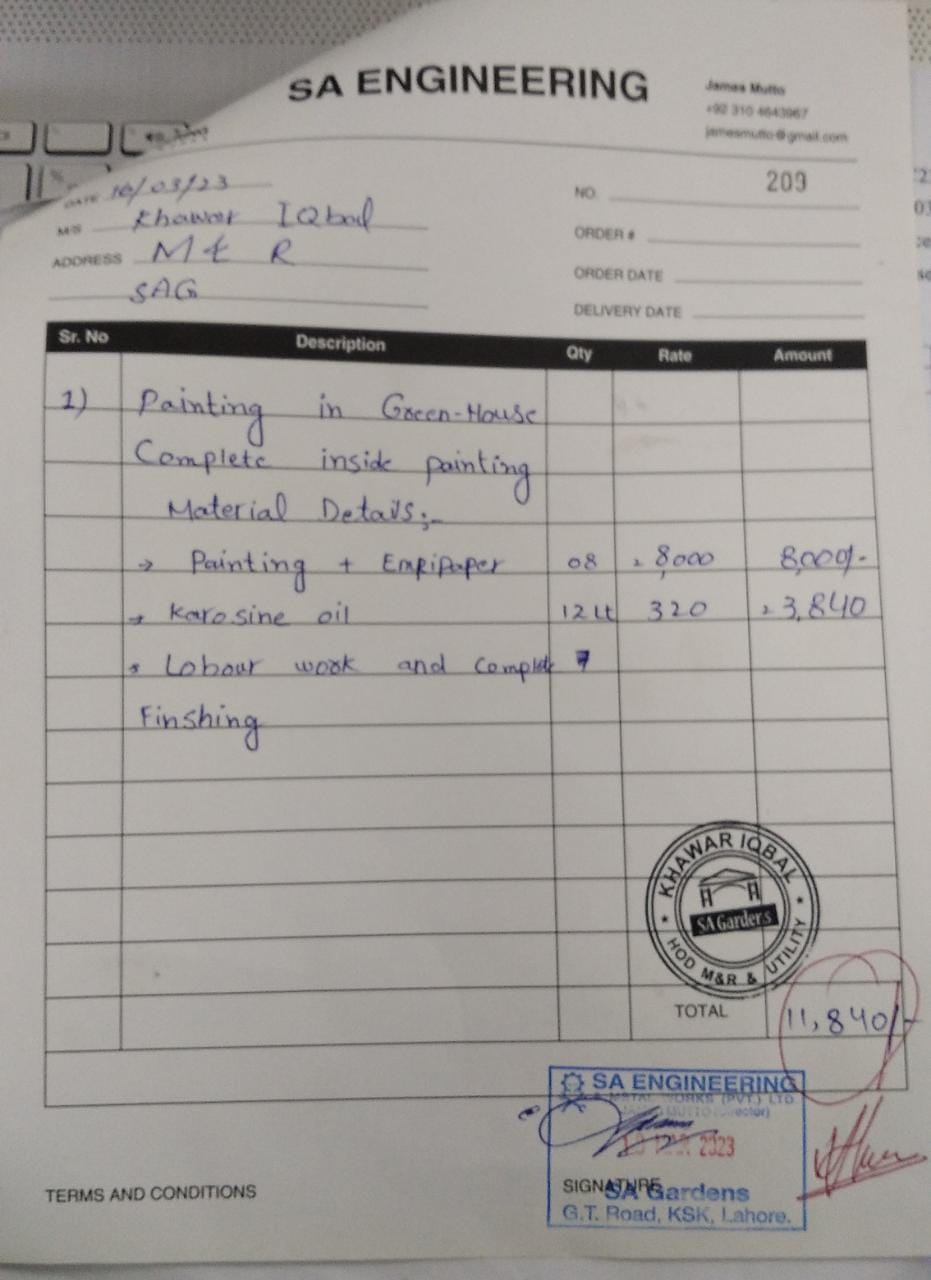 SA ENGINEERING
James Mutto
+92 310 4643967
jamesmutto@gmail.com
DATE 16/03/23
NO. 209
M/S Khawar IQbal
ORDER #
ADDRESS M & R
SAG
ORDER DATE
DELIVERY DATE
Sr. No Description Qty Rate Amount
1) Painting in Green-House
Complete inside painting
Material Details:-
→ Painting + Empipaper 08 8,000 8,000/-
→ Karosine oil 12 Lt 320 3,840
Labour work and Complete
Finshing
KHAWAR IQBAL
SA Gardens
HOD M&R & UTILITY
TOTAL 11,840/-
SA ENGINEERING
METAL WORKS (PVT.) LTD
JAMES MUTTO (Director)
2023
SIGNATURE
SA Gardens
G.T. Road, KSK, Lahore.
TERMS AND CONDITIONS